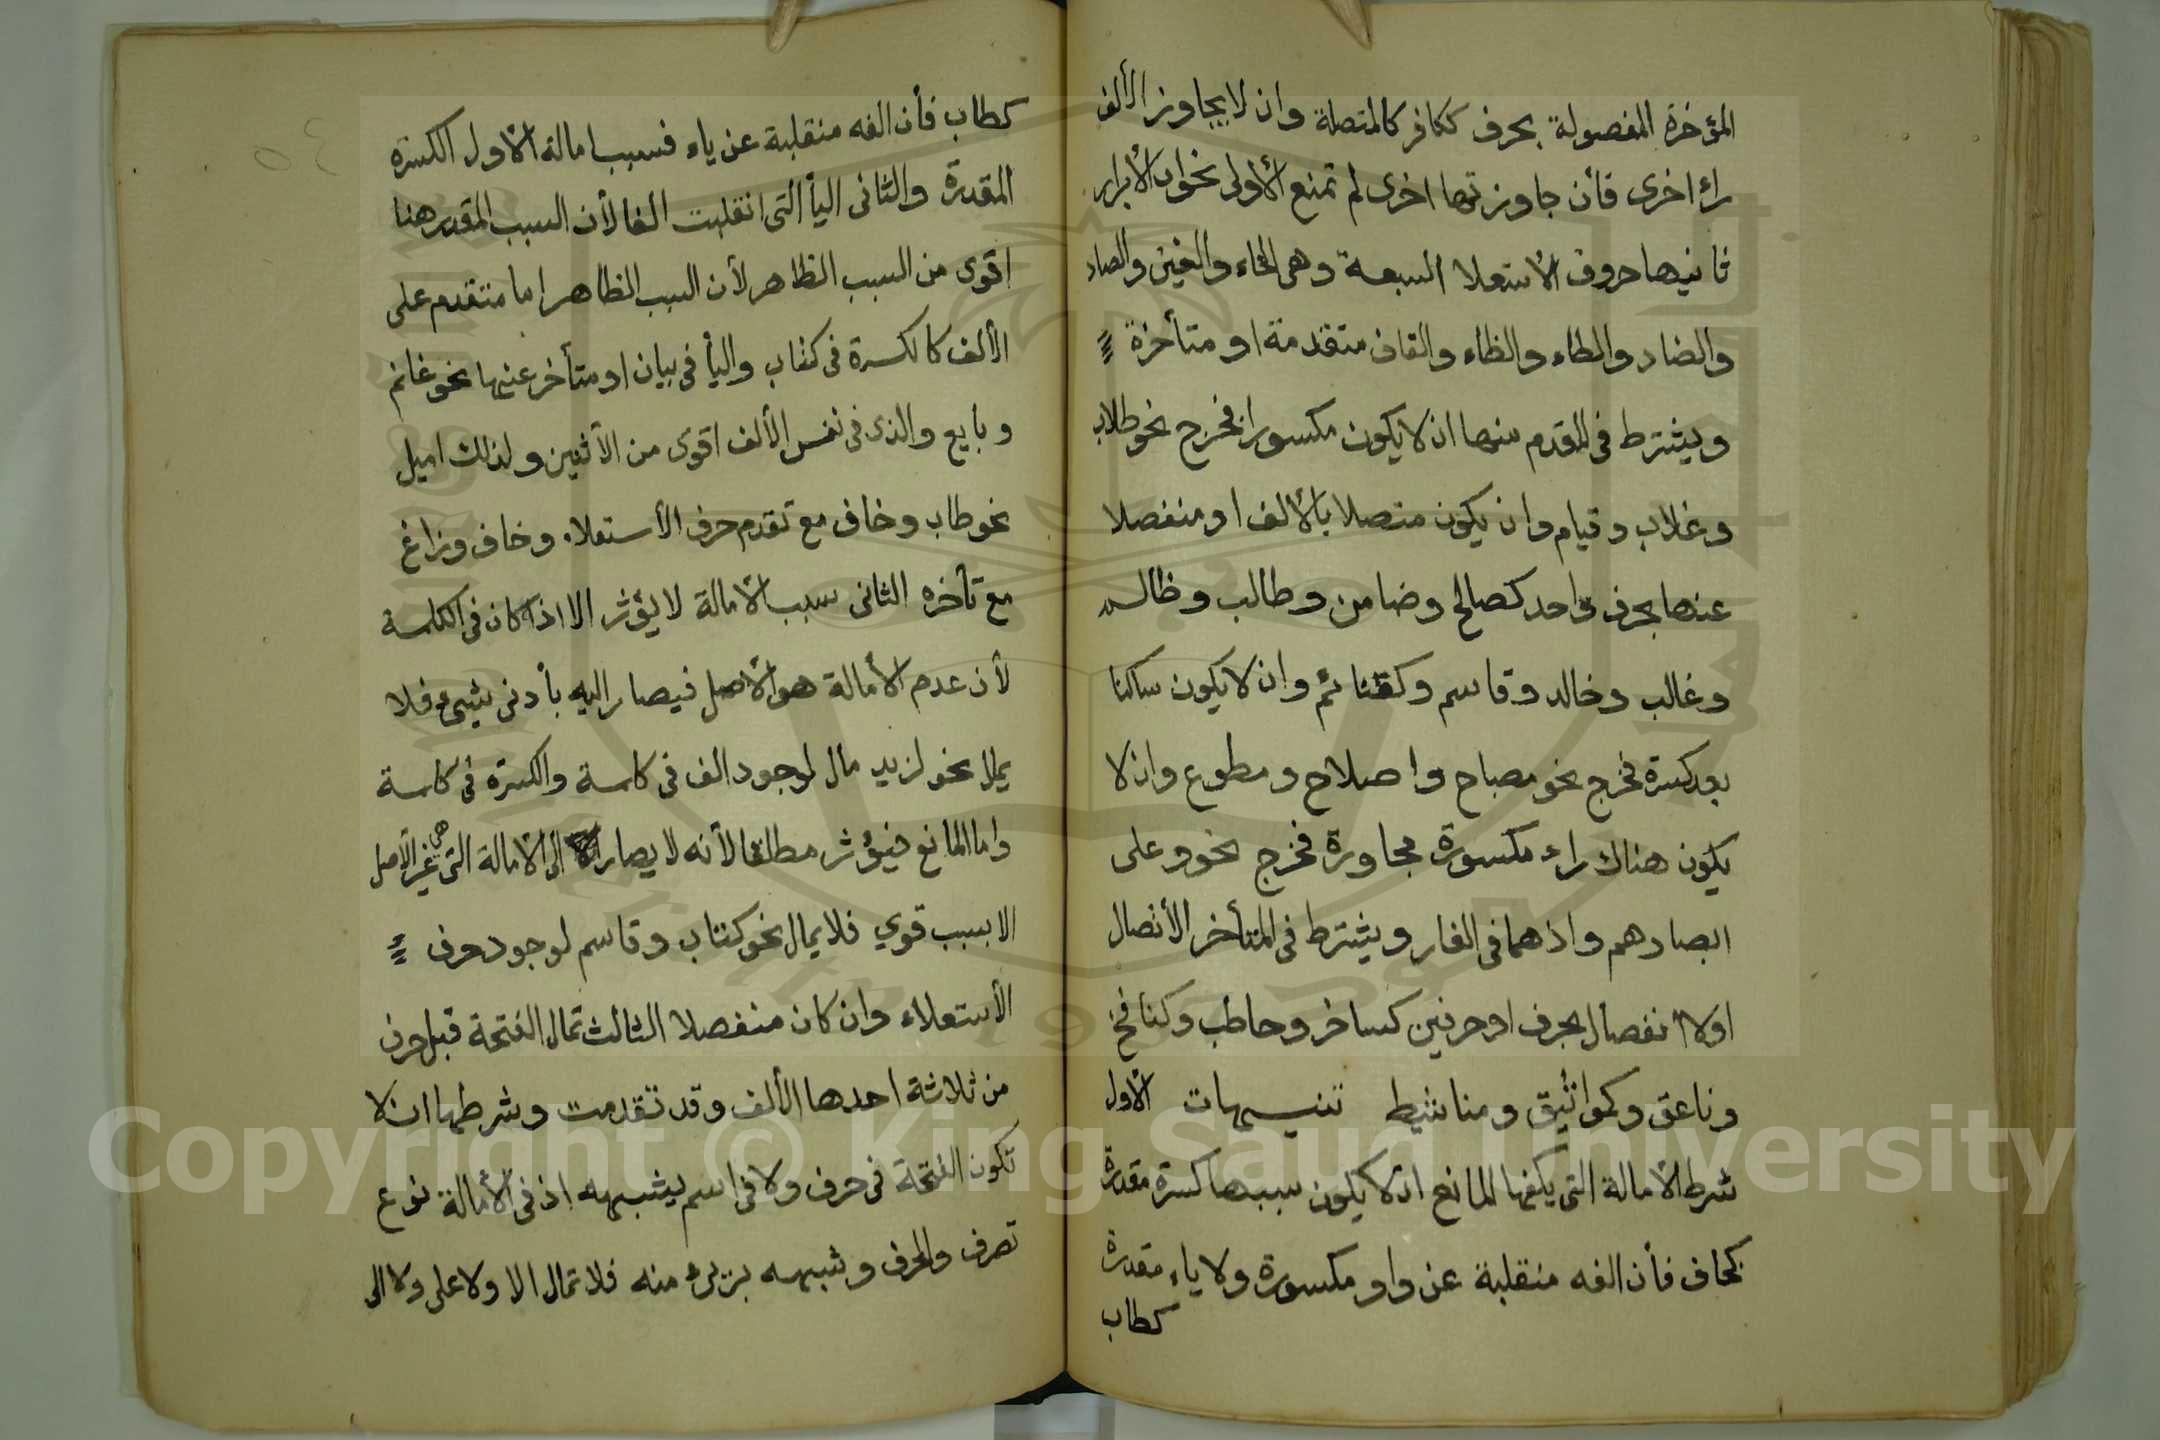 المؤخرة المفصولة بحرف ككافر كالمتصلة وان لا يجاوز الألف
راء اخرى فأن جاوزتها اخرى لم تمنع الأولى نحو ان الأبرار
ثانيها حروف الأستعلا السبعة وهى الخاء والغين والصاد
والضاد والطاء والظاء والقاف متقدمة او متأخرة
ويشترط فى المقدم منها ان لا يكون مكسورا فخرج نحو طلاب
وغلاب وقيام وان يكون متصلا بالألف او منفصلا
عنها بحرف واحد كصالح وضامن وطالب وظالم
وغالب وخالد وقاسم وكغنائم وان لا يكون ساكنا
بعد كسرة فخرج نحو مصباح واصلاح ومطوع وان لا
يكون هناك راء مكسورة مجاورة فخرج نحو وعلى
ابصارهم واذ هما فى الغار ويشترط فى المتأخر الأتصال
اولا انفصال بحرف او حرفين كساخر وحاطب وكنافخ
وناعق وكمواثيق ومناشيط تنبيهات الأول
شرط الأمالة التى يكفها المانع ان لا يكون سببها كسرة مقدرة
كخاف فأن الفه منقلبة عن واو مكسورة ولا ياء مقدرة
كطاب
كطاب فأن الفه منقلبة عن ياء فسبب امالة الأول الكسرة
المقدرة والثانى اليأ التى انقلبت الفا لأن السبب المقدر هنا
اقوى من السبب الظاهر لأن السبب الظاهر اما متقدم على
الألف كالكسرة فى كتاب واليأ فى بيان او متأخر عنها نحو غانم
وبايع والذى فى نفس الألف اقوى من الأثنين ولذلك اميل
نحو طاب وخاف مع تقدم حرف الأستعلاء وخاف وزاغ
مع تأخره الثانى سبب الأمالة لا يؤثر الا اذا كان فى الكلمة
لأن عدم الأمالة هو الأصل فيصار اليه بأدنى شيئ فلا
يمال نحو لزيد مال لوجود الف فى كلمة والكسرة فى كلمة
واما المانع فيؤثر مطلقا لأنه لا يصار الى الأمالة التى هى غير الأصل
الا بسبب قوي فلا يمال نحو كتاب وقاسم لوجود حرف
الأستعلاء وان كان منفصلا الثالث تمال الفتحة قبل حرف
من ثلاثة احدها الألف وقد تقدمت وشرطها ان لا
تكون الفتحة فى حرف ولا فى اسم يشبهه اذ فى الأمالة نوع
تصرف والحرف وشبهه برىء منه فلا تمال الا ولا على ولا الى
Copyright © King Saud University